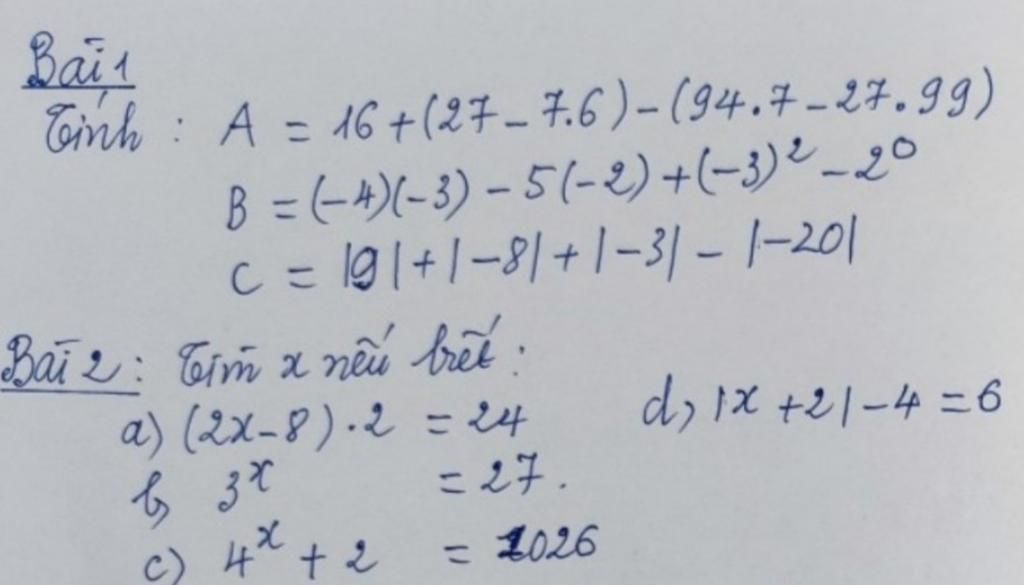 Bài 1
Tính : A = 16 + (27 - 7.6) - (94.7 - 27.99)
B = (-4)(-3) - 5(-2) + (-3)² - 2⁰
C = |9| + |-8| + |-3| - |-20|
Bài 2 : Tìm x nếu biết :
a) (2x - 8) . 2 = 24
d, |x + 2| - 4 = 6
b, 3ˣ = 27.
c) 4ˣ + 2 = 1026